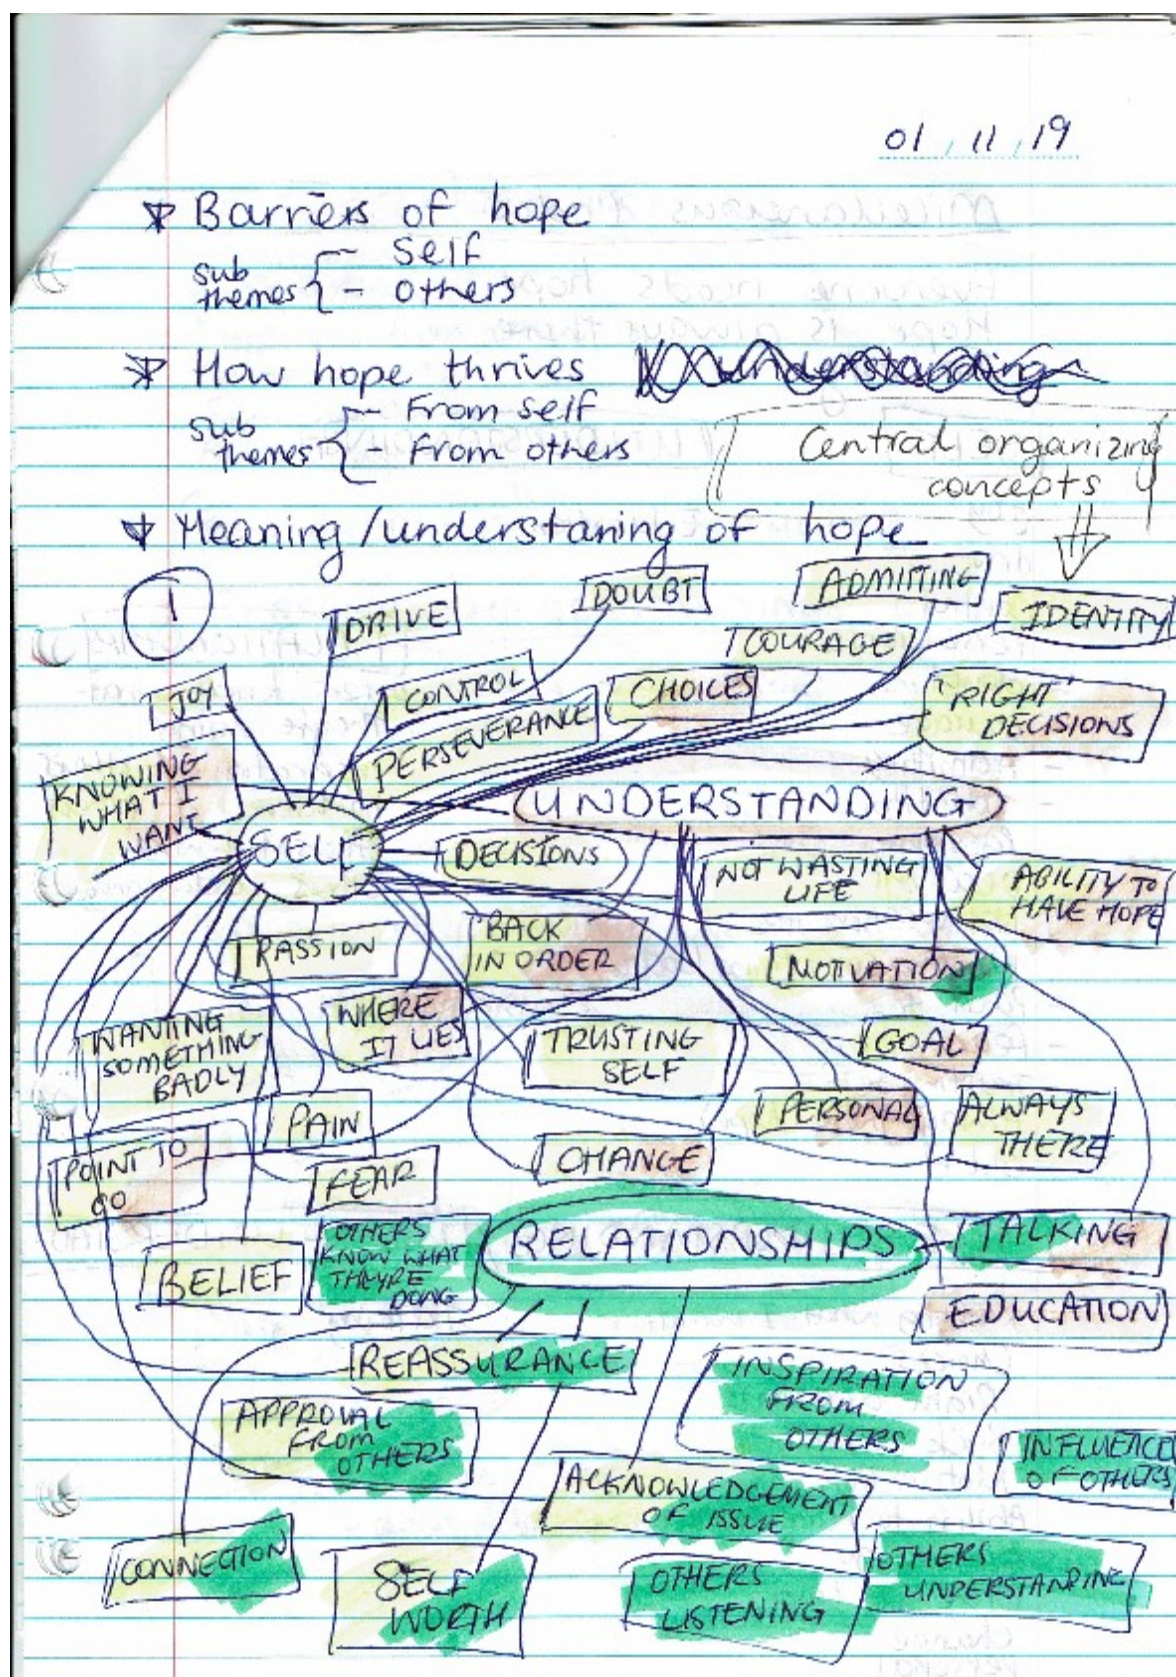 01 / 11 / 19
Barriers of hope
sub themes
- Self
- Others
How hope thrives
understanding
sub themes
- From self
- From others
Central organizing
concepts
Meaning/understaning of hope
1
DRIVE
DOUBT
ADMITTING
IDENTITY
COURAGE
JOY
CONTROL
CHOICES
"RIGHT"
DECISIONS
PERSEVERANCE
KNOWING
WHAT I
WANT
UNDERSTANDING
SELF
DECISIONS
NOT WASTING
LIFE
ABILITY TO
HAVE HOPE
PASSION
BACK
IN ORDER
MOTIVATION
WHERE
IT LIES
WANTING
SOMETHING
BADLY
TRUSTING
SELF
GOAL
PAIN
PERSONAL
ALWAYS
THERE
POINT TO
GO
FEAR
CHANGE
BELIEF
OTHERS
KNOW WHAT
THEYRE
DONG
RELATIONSHIPS
TALKING
EDUCATION
REASSURANCE
INSPIRATION
FROM
OTHERS
APPROVAL
FROM
OTHERS
INFLUENCE
OF OTHERS
ACKNOWLEDGEMENT
OF ISSUE
CONNECTION
SELF
WORTH
OTHERS
LISTENING
OTHERS
UNDERSTANDING